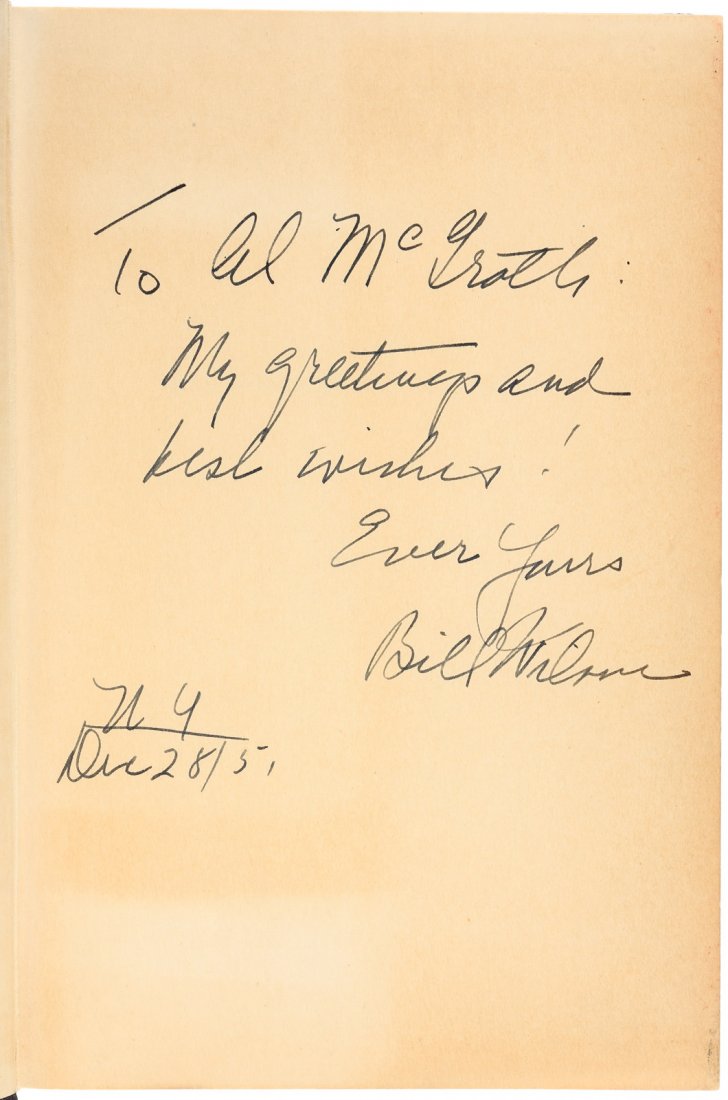 To Al McGrath:
My greetings and
best wishes!
Ever Yours
Bill Wilson
N Y
Dec 28/51